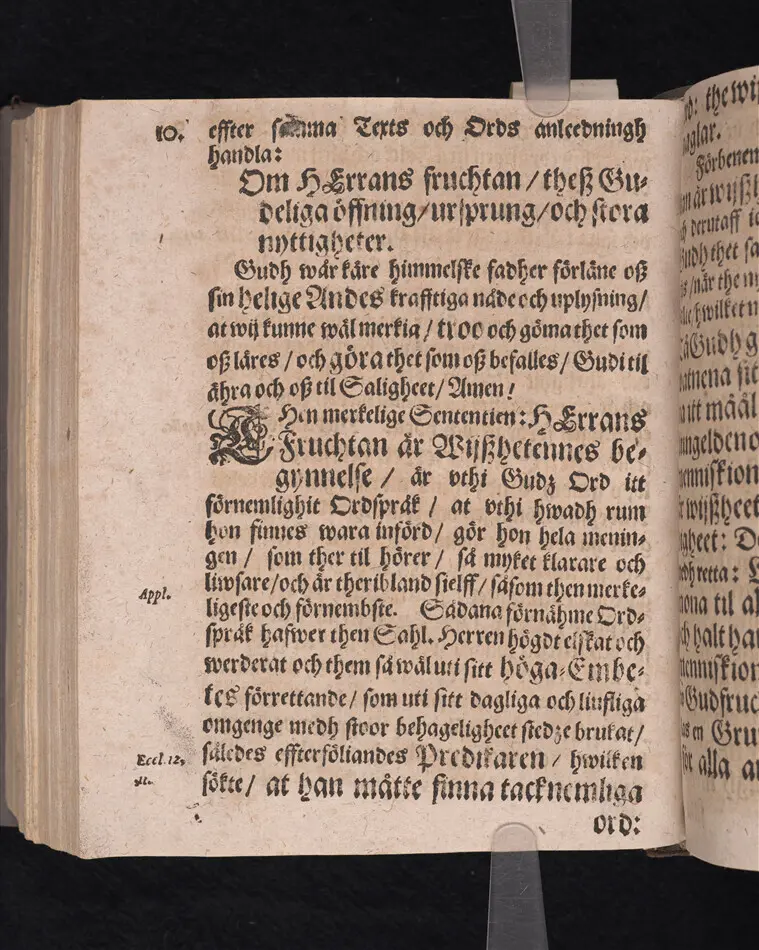 10. effter samma Texts och Ords anleedningh
handla:
Om HErrans fruchtan / theß Gu-
deliga öffning / ursprung / och stora
nyttigheter.
Gudh wår käre himmelske fadher förläne oß
sin helige Andes krafftiga nåde och uplysning /
at wij kunne wäl merkia / troo och göma thet som
oß läres / och göra thet som oß befalles / Gudi til
ähra och oß til Saligheet / Amen!
THen merkelige Sententien: HErrans
Fruchtan är Wijßhetennes be-
gynnelse / är vthi Gudz Ord itt
förnemlighit Ordspråk / at vthi hwadh rum
hon finnes wara införd / gör hon hela menin-
gen / som ther til hörer / så myket klarare och
liwsare / och är theribland sielff / såsom then merke-
Appl. ligeste och förnembste. Sådana förnähme Ord-
språk hafwer then Sahl. Herren högdt elskat och
werderat och them så wäl uti sitt höga-Embe-
tes förrettande / som uti sitt dagliga och liufliga
omgenge medh stoor behageligheet stedze brukat /
Eccl. 12, således effterföliandes Predikaren / hwilken
11. sökte / at han måtte finna tacknemliga
ord:
the wij
glar.
Förbenem
är wijßh
derutaff
thet sa
när the
hwilket
Gudh g
sit
måål
ngeldeno
menniskion
wijßheet
gheet: D
retta:
ona til al
halt ha
menniskion
Gudfruc
en Gru
alla a